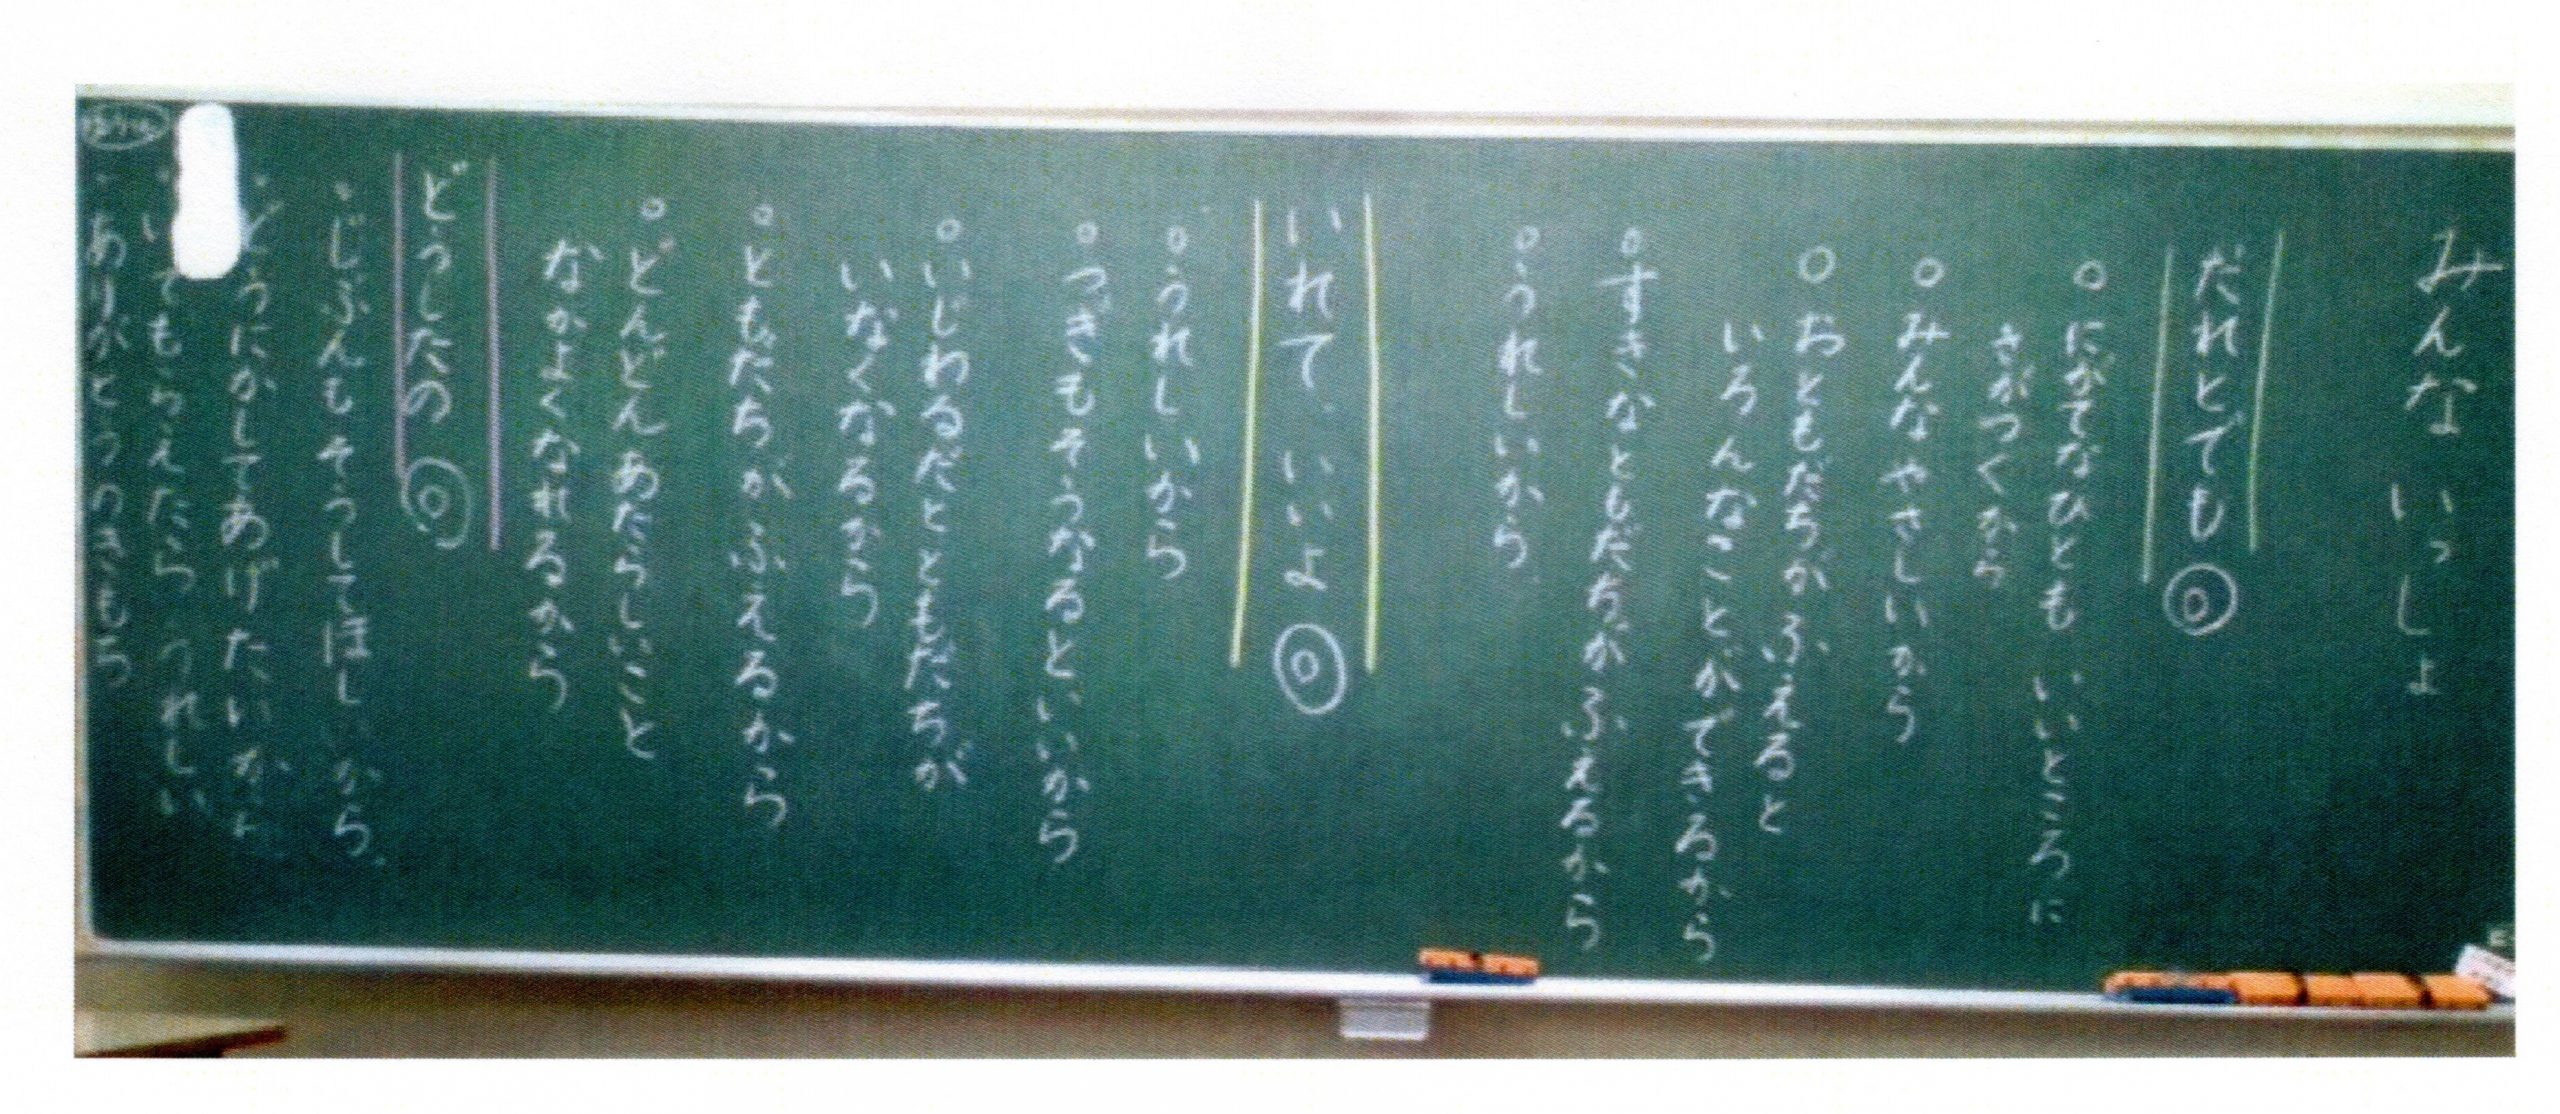 みんな いっしょ
だれとでも ◎
○にがてなひとも いいところに
きがつくから
○みんなやさしいから
○おともだちがふえると
いろんなことができるから
○すきなともだちがふえるから
○うれしいから
いれて いいよ ◎
○うれしいから
○つぎもそうなるといいから
○いじわるだとともだちが
いなくなるから
○ともだちがふえるから
○どんどんあたらしいこと
なかよくなれるから
どうしたの ◎
・じぶんもそうしてほしいから
・どうにかしてあげたいから
てもらえたら うれしい
・ありがとうのきもち